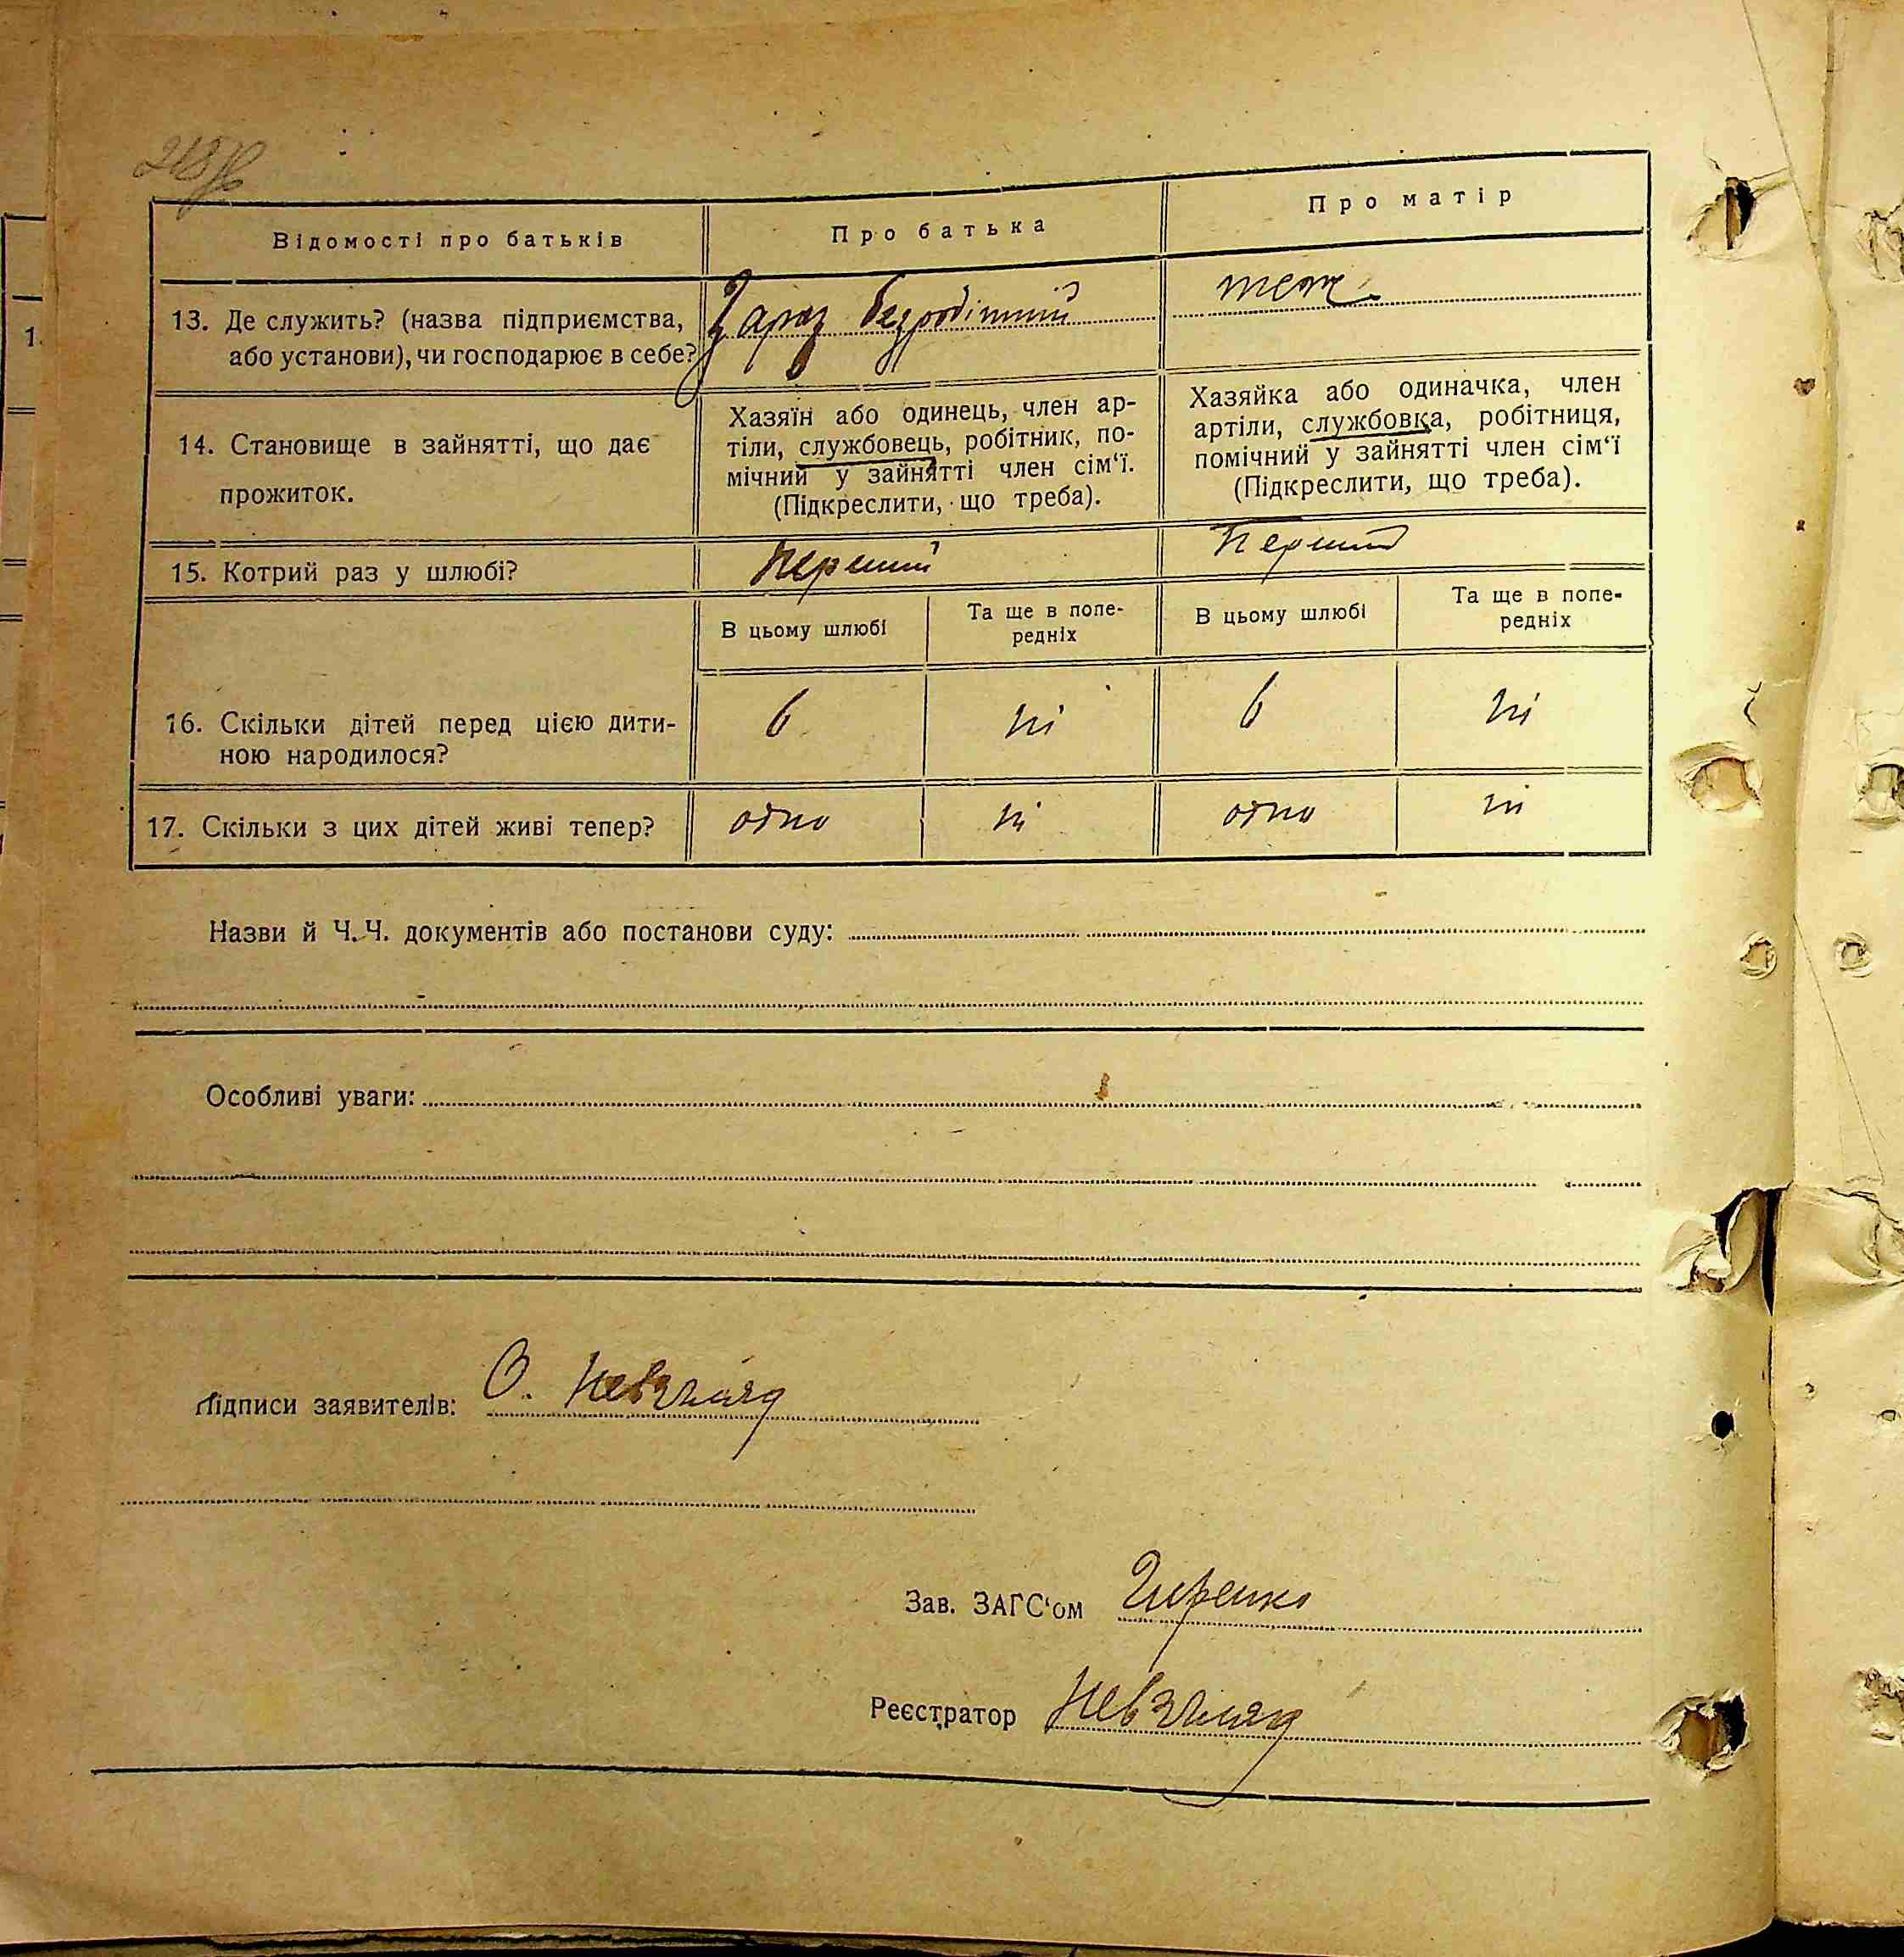 218
Відомості про батьків
Про батька
Про матір
13. Де служить? (назва підприємства,
або установи), чи господарює в себе?
Зараз безробітний
теж
14. Становище в зайнятті, що дає
прожиток.
Хазяїн або одинець, член ар-
тіли, службовець, робітник, по-
мічний у зайнятті член сім‘ї.
(Підкреслити, що треба).
Хазяйка або одиначка, член
артіли, службовка, робітниця,
помічний у зайнятті член сім‘ї
(Підкреслити, що треба).
15. Котрий раз у шлюбі?
Перший
Перший
В цьому шлюбі
Та ще в попе-
редніх
В цьому шлюбі
Та ще в попе-
редніх
16. Скільки дітей перед цією дити-
ною народилося?
6
ні
6
ні
17. Скільки з цих дітей живі тепер?
одно
ні
одно
ні
Назви й Ч.Ч. документів або постанови суду:
Особливі уваги:
Підписи заявителів:
О. Невзгляд
Зав. ЗАГС‘ом
Реєстратор
Невзгляд
1.